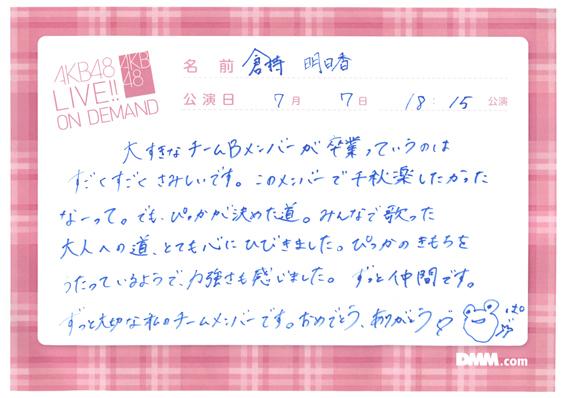 AKB48
LIVE!!
ON DEMAND
AKB
48
名前 倉持 明日香
公演日 7月 7日 18:15 公演
大すきなチームBメンバーが卒業っていうのは
すごくすごくさみしいです。このメンバーで千秋楽したかった
なーって。でも、ぴっかが決めた道。みんなで歌った
大人への道、とても心にひびきました。ぴっかのきもちを
うたっているようで、力強さも感じました。ずっと仲間です。
ずっと大切な私のチームメンバーです。おめでとう、ありがとう
DMM.com